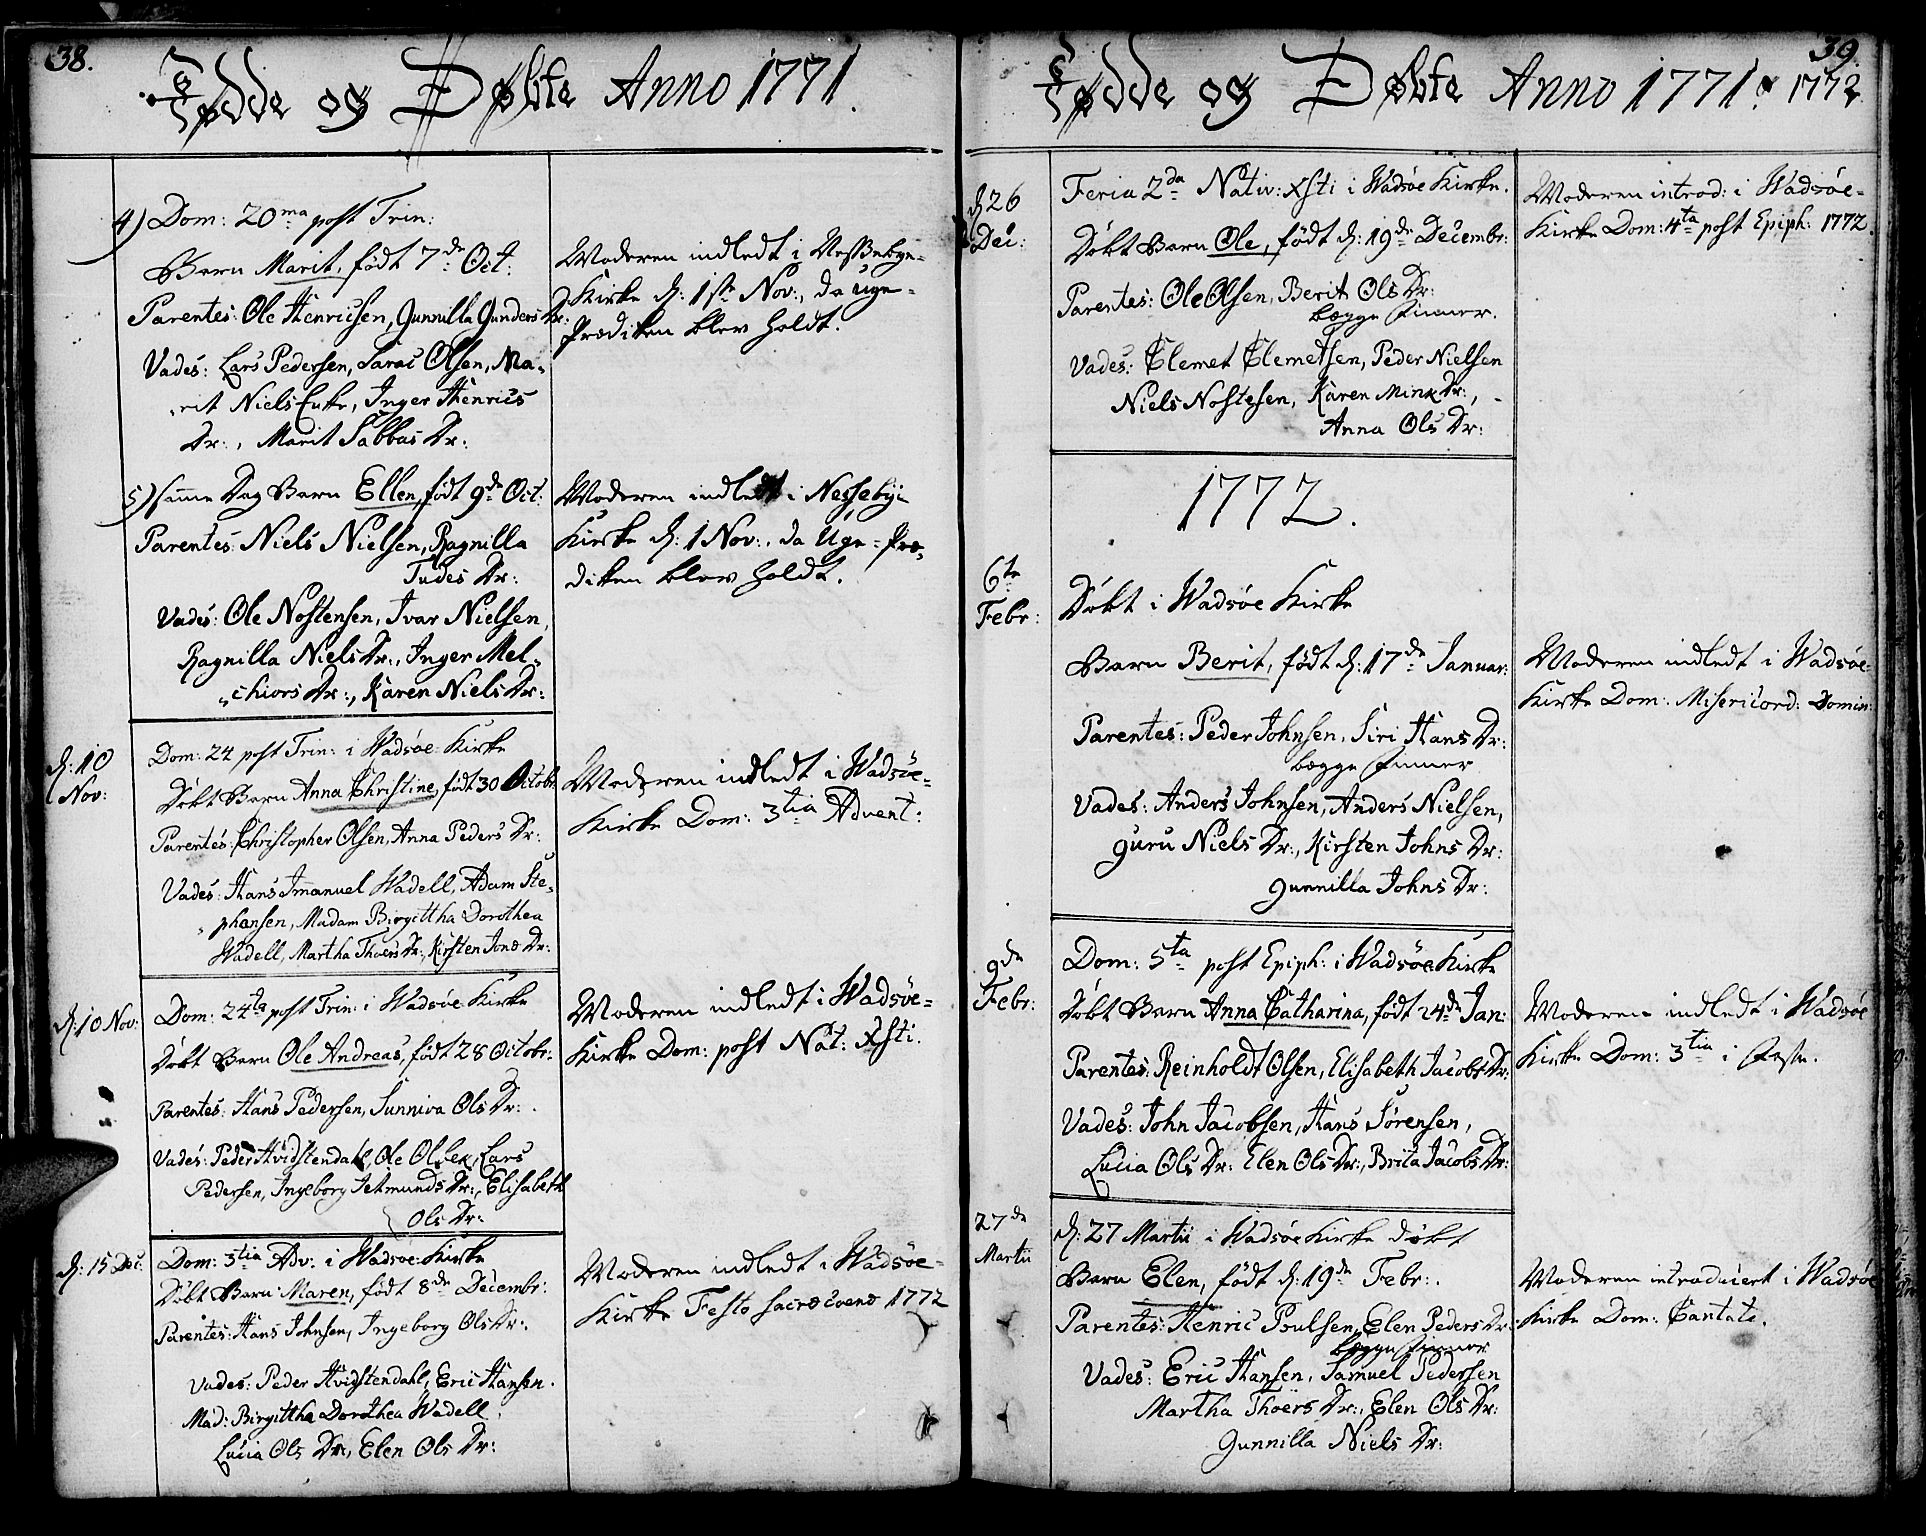 38.
Fødde og Døbte Anno 1771.
4) Dom: 20ma post Trin:
Barn Marit, født 7de Oct:
Parentes: Ole Henricsen, Gunnilla Gunders Dr:
Vades: Lars Pedersen, Sarac Olsen, Ma-
rit Niels Enke, Inger Henrics
Dr:, Marit Sabbas Dr:
Moderen indledt i Nessebye-
Kirke d: 1ste Nov:, da uge-
Prædiken blev holdt.
5) samme Dag Barn Ellen, født 9de Oct:
Parentes: Niels Nielsen, Ragnilla
Tudes Dr:
Vades: Ole Nostensen, Ivar Nielsen,
Ragnilla Niels Dr:, Inger Mel-
chiors Dr:, Karen Niels Dr:
Moderen indledt i Nessebye
Kirke d: 1 Nov:, da Uge-Præ-
diken blev holdt.
d: 10
Nov:
Dom: 24 post Trin: i Wadsøe Kirke
Døbt Barn Anna Christine, født 30 Octobr:
Parentes: Christopher Olsen, Anna Peders Dr:
Vades: Hans Imanuel Wadell, Adam Ste-
phansen, Madam Birgittha Dorothea
Wadell, Martha Thoers Dr:, Kirsten Jons Dr:
Moderen indledt i Wadsøe-
Kirke Dom: 3tia Advent:
d: 10 Nov:
Dom: 24ta post Trin: i Wadsøe Kirke
Døbt Barn Ole Andreas, født 28 Octobr:
Parentes: Hans Pedersen, Sunniva Ols Dr:
Vades: Peder Hvidstendahl, Ole Olsen, Lars
Pedersen, Ingeborg Jetmunds Dr:, Elisabeth
Ols Dr:
Moderen indledt i Wadsøe-
Kirke Dom: post Nat: Xsti.
d: 15 Dec:
Dom: 3tia Adv: i Wadsøe Kirke
Døbt Barn Maren, født 8de Decembr:
Parentes: Hans Johnsen, Ingeborg Ols Dr:
Vades: Peder Hvidstendahl, Eric Hansen.
Mad: Birgittha Dorothea Wadell,
Lucia Ols Dr:, Elen Ols Dr:
Moderen indledt i Wadsøe-
Kirke Festo 1772
39.
Fødde og Døbte Anno 1771 & 1772
d 26
Dec:
Feria 2da Nativ: Xsti i Wadsøe Kirke.
Døbt Barn Ole, født d: 19de Decembr:
Parentes: Ole Olsen, Berit Ols Dr:
begge Finner.
Vades: Clemet Clemetsen, Peder Nielsen
Niels Nostesen, Karen Minx Dr:,
Anna Ols Dr:
Moderen introd: i Wadsøe-
Kirke Dom: 4ta post Epiph: 1772.
1772.
6te
Febr:
Døbt i Wadsøe Kirke
Barn Berit, født d: 17de Januar:
Parentes: Peder Johnsen, Siri Hans Dr:
begge Finner
Vades: Anders Johnsen, Anders Nielsen,
Guru Niels Dr:, Kirsten Johns Dr:
Gunnilla Johns Dr:
Moderen indledt i Wadsøe-
Kirke Dom: Misericord: Domin:
9de
Febr:
Dom: 5ta post Epiph: i Wadsøe Kirke
Døbt Barn Anna Catharina, født 24de Jan:
Parentes: Reinholdt Olsen, Elisabeth Jacobs Dr:
Vades: John Jacobsen, Hans Sørensen,
Lucia Ols Dr: Elen Ols Dr:, Brita Jacobs Dr:
Moderen indledt i Wadsøe
Kirke Dom: 3tia i Faste.
27de
Martii
d: 27 Martii i Wadsøe Kirke døbt
Barn Elen, født d: 19de Febr:.
Parentes: Henric Poulsen, Elen Peders Dr:
begge Finner
Vades: Eric Hansen, Samuel Pedersen
Martha Thoers Dr:, Elen Ols Dr:
Gunnilla Niels Dr:
Moderen introducert i Wadsøe
Kirke Dom: Cantate.